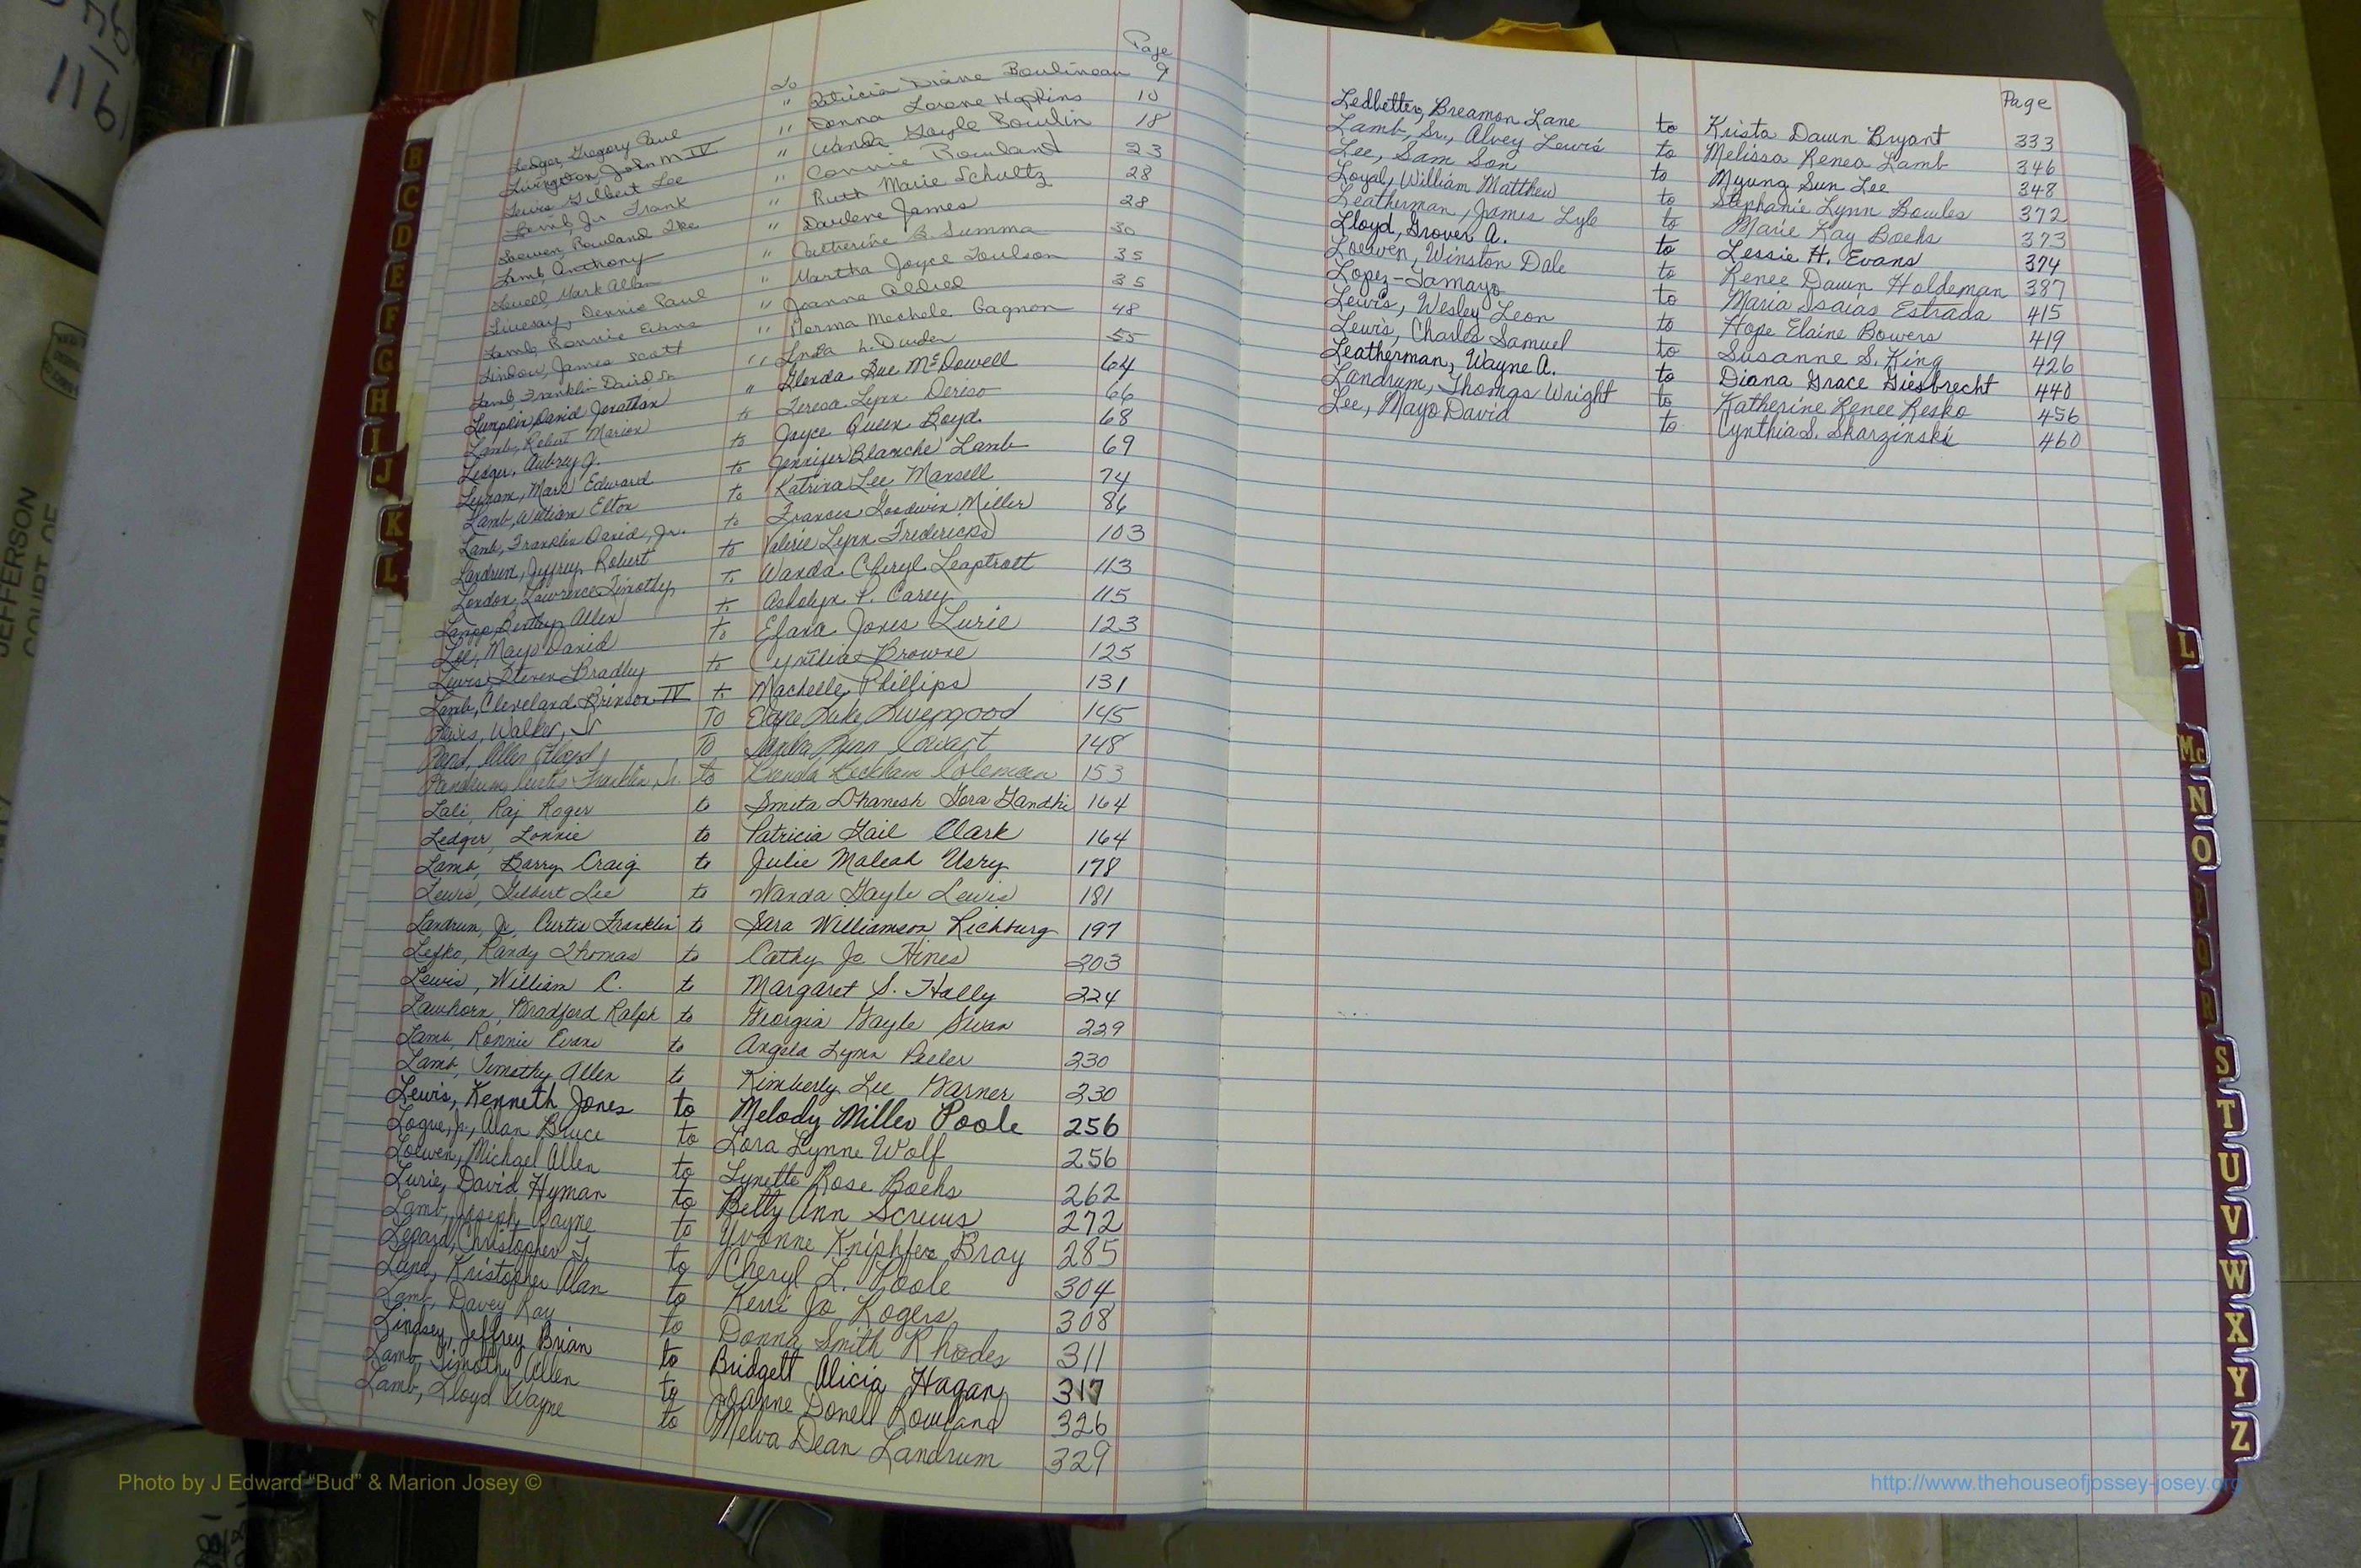 To Page
Ledger, Gregory Paul " Patricia Diane Boulineau 9
Livingston, John M IV " Donna Lorene Hopkins 10
Lewis Gilbert Lee " Wanda Gayle Bowlin 18
Lamb, Jr Frank " Connie Rowland 23
Loewen, Rowland Ike " Ruth Marie Schultz 28
Lamb, Anthony " Darlene James 28
Lowell, Mark Allan " Catherine B. Summa 30
Livesay, Dennis Paul " Martha Joyce Toulson 35
Lamb, Ronnie Evans " Joanna Aldred 35
Lindow, James Scott " Norma Mechele Gagnon 48
Lamb, Franklin David Sr " Linda L. Durden 55
Lumpkin David Jonathan " Glenda Sue McDowell 64
Lamb, Robert Marion to Teresa Lynn Deriso 66
Ledger, Aubrey J. to Joyce Queen Boyd. 68
Mark Edward to Jennifer Blanche Lamb 69
Lamb, William Elton to Katrina Lee Mansell 74
Lamb, Franklin David, Jr. to Frances Goodwin Miller 86
Landrum, Jeffrey Robert to Valerie Lynn Fredericks 103
London, Lawrence Timothy to Wanda Cheryl Leaptrott 113
Allen to Ashelyn P. Carey 115
Lee, Mayo David to Efana Jones Lurie 123
Lewis Steven Bradley to Cynthia Browne 125
Lamb, Cleveland Brinson IV to Machelle Phillips 131
Lewis, Walker, Jr To Elaine Lake Livengood 145
Land, Allen Floyd To Lynn Cowart 148
Landrum, Curtis Franklin, Jr. to Brenda Peckham Coleman 153
Lali, Raj Roger to Smita Dhanesh Gora Gandhi 164
Ledger, Lonnie to Patricia Gail Clark 164
Lamb, Barry Craig to Julie Maleah Usry 178
Lewis, Gilbert Lee to Wanda Gayle Lewis 181
Landrum, Jr, Curtis Franklin to Sara Williamson Richburg 197
Lefko, Randy Thomas to Cathy Jo Hines 203
Lewis, William C. to Margaret S. Hally 224
Lawhorn, Bradford Ralph to Georgia Gayle Swan 229
Lamb, Ronnie Evans to Angela Lynn Peeler 230
Lamb, Timothy Allen to Kimberly Lee Garner 230
Lewis, Kenneth Jones to Melody Miller Poole 256
Logue, Jr., Alan Bruce to Lora Lynne Wolf 256
Loewen, Michael Allen to Lynette Rose Boehs 262
Lurie, David Hyman to Betty Ann Screws 272
Lamb, Joseph Wayne to Yvonne Kniphfer Bray 285
Lepard, Christopher J. to Cheryl L. Poole 304
Land, Kristopher Alan to Kerri Jo Rogers 308
Lamb, Davey Ray to Donna Smith Rhodes 311
Lindsey, Jeffrey Brian to Bridgett Alicia Hagan 317
Lamb, Timothy Allen to Joanne Donell Rowland 326
Lamb, Lloyd Wayne to Melva Dean Landrum 329
Page
Ledbetter, Breamon Lane to Krista Dawn Bryant 333
Lamb, Sr., Alvey Lewis to Melissa Renea Lamb 346
Lee, Sam Son to Myung Sun Lee 348
Loyal, William Matthew to Stephanie Lynn Bowles 372
Leatherman, James Lyle to Marie Kay Boehs 373
Lloyd, Grover A. to Lessie H. Evans 374
Loewen, Winston Dale to Renee Dawn Holdeman 387
Lopez-Tamayo to Maria Isaias Estrada 415
Lewis, Wesley Leon to Hope Elaine Bowers 419
Lewis, Charles Samuel to Susanne S. King 426
Leatherman, Wayne A. to Diana Grace Giesbrecht 440
Landrum, Thomas Wright to Katherine Renee Resko 456
Lee, Mayo David to Cynthia S. Skarzinski 460
B
C
D
E
F
G
H
I
J
K
L
L
Mc
N
O
Q
R
S
T
U
V
W
X
Y
Z
JEFFERSON
COURT OF
Photo by J Edward “Bud” & Marion Josey ©
http://www.thehouseofjossey-josey.org